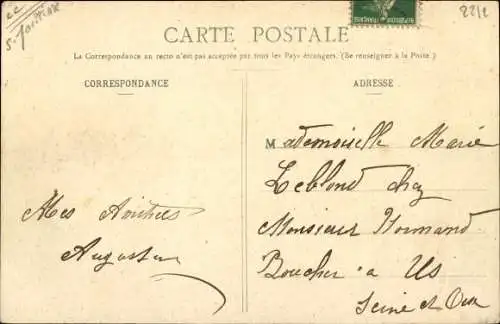 2212
CARTE POSTALE
La Correspondance au recto n'est pas acceptée par tous les Pays étrangers. (Se renseigner à la Poste.)
CORRESPONDANCE
ADRESSE
Mes Amitiés
Augustin
Mademoiselle Marie
Leblond chez
Monsieur Normand
Boucher à Us
Seine et Oise